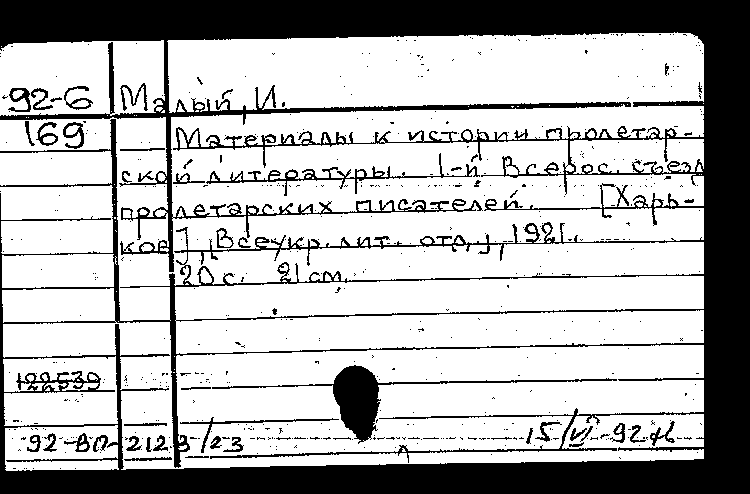 92-6 Малый, И.
169 Материалы к истории пролетар-
ской литературы. 1-й Всерос. съезд
пролетарских писателей. [Харь-
ков], [Всеукр. лит. отд.], 1921.
20 с. 21 см.
122539
92-ВП-2123/23 15/VI-92